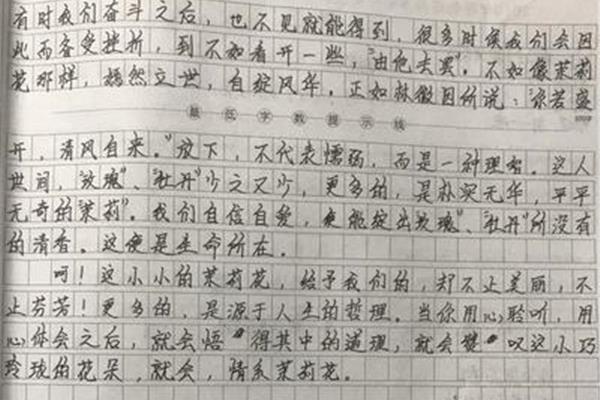 有时我们奋斗之后，也不见就能得到，很多时候我们会因
此而备受挫折，到不如看开一些，"由他去罢"。不如像茉莉
花那样，嫣然立世，自绽风华。正如林徽因所说："你若盛
最低字数提示线
开，清风自来。"放下，不代表懦弱，而是一种理智。这人
世间，"玫瑰"、"牡丹"少之又少，更多的，是朴实无华，平平
无奇的"茉莉"。我们自信自爱，便能绽出"玫瑰"、"牡丹"所没有
的清香。这便是生命所在。
呵！这小小的茉莉花，给予我们的，却不止美丽，不
止芬芳！更多的，是源于人生的哲理。当你用心聆听，用
心体会之后，就会悟得其中的道理，就会赞叹这小巧
玲珑的花朵，就会，情系茉莉花。